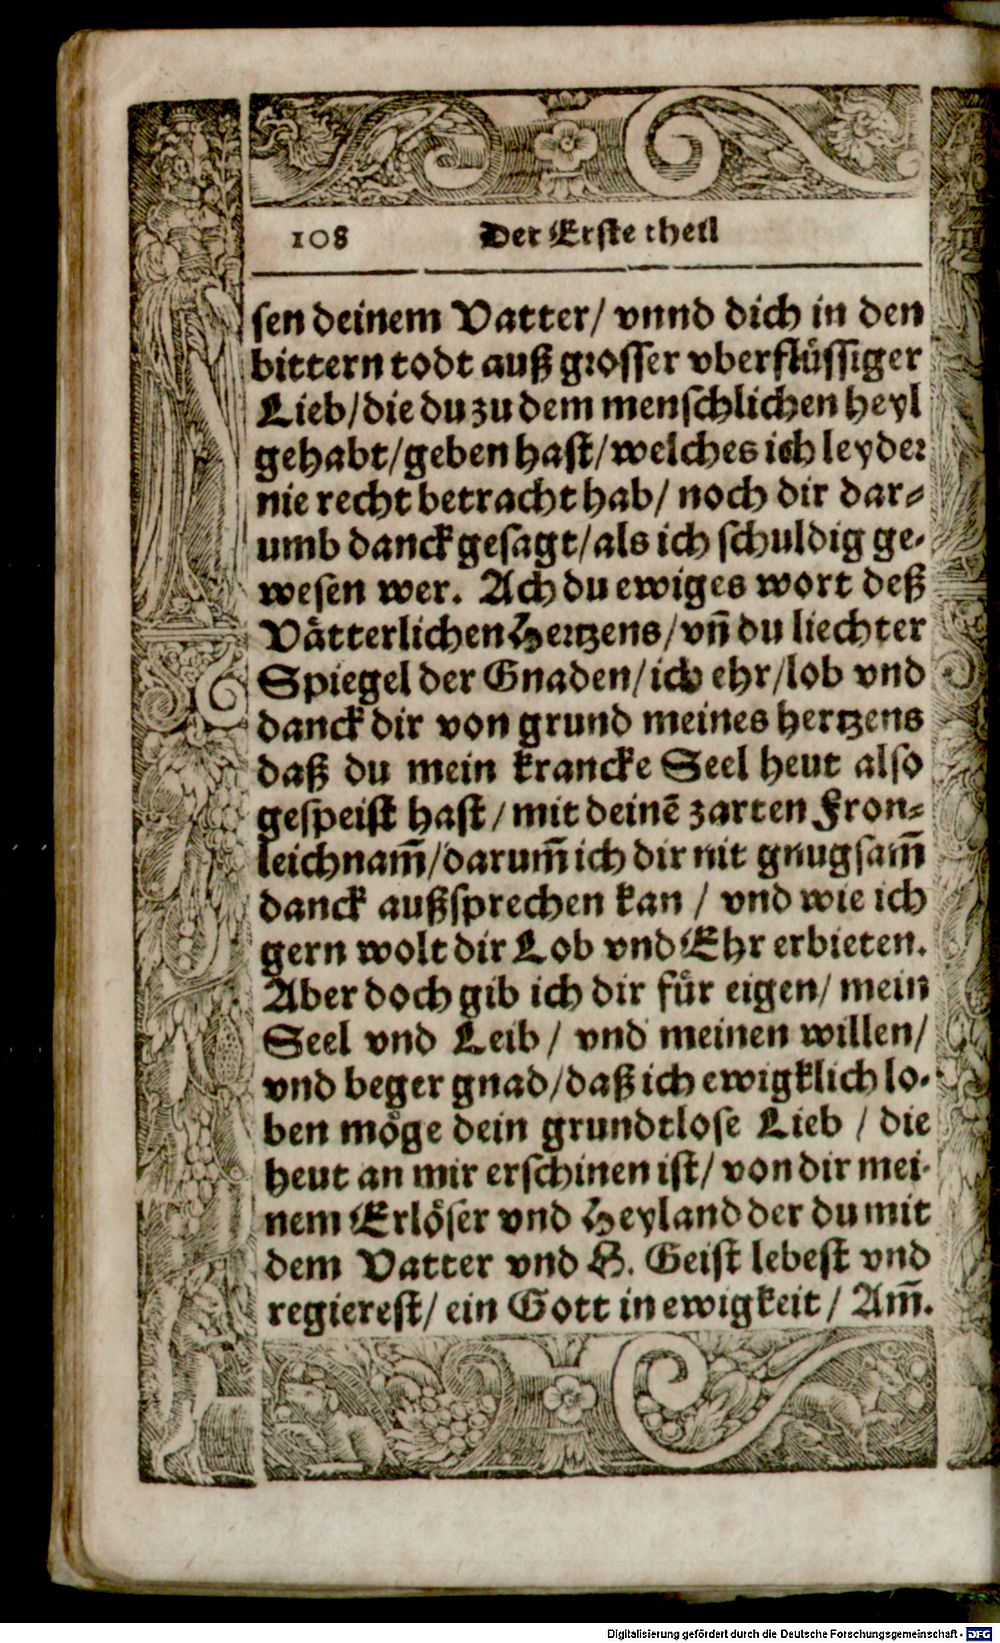 108 Der Erste theil
sen deinem Vatter/ vnnd dich in den
bittern todt auß grosser vberflüssiger
Lieb/die du zu dem menschlichen heyl
gehabt/geben hast/welches ich leyder
nie recht betracht hab/ noch dir dar⸗
umb danck gesagt/als ich schuldig ge⸗
wesen wer. Ach du ewiges wort deß
Vätterlichen Hertzens/vn̄ du liechter
Spiegel der Gnaden/ich ehr/lob vnd
danck dir von grund meines hertzens
daß du mein krancke Seel heut also
gespeist hast/mit deinē zarten Fron⸗
leichnam̄/darum̄ ich dir nit gnugsam̄
danck außsprechen kan / vnd wie ich
gern wolt dir Lob vnd Ehr erbieten.
Aber doch gib ich dir für eigen/ mein
Seel vnd Leib / vnd meinen willen/
vnd beger gnad/daß ich ewigklich lo⸗
ben möge dein grundtlose Lieb / die
heut an mir erschinen ist/ von dir mei⸗
nem Erlöser vnd Heyland der du mit
dem Vatter vnd H. Geist lebest vnd
regierest/ ein Gott in ewigkeit / Am̄.
Digitalisierung gefördert durch die Deutsche Forschungsgemeinschaft - DFG